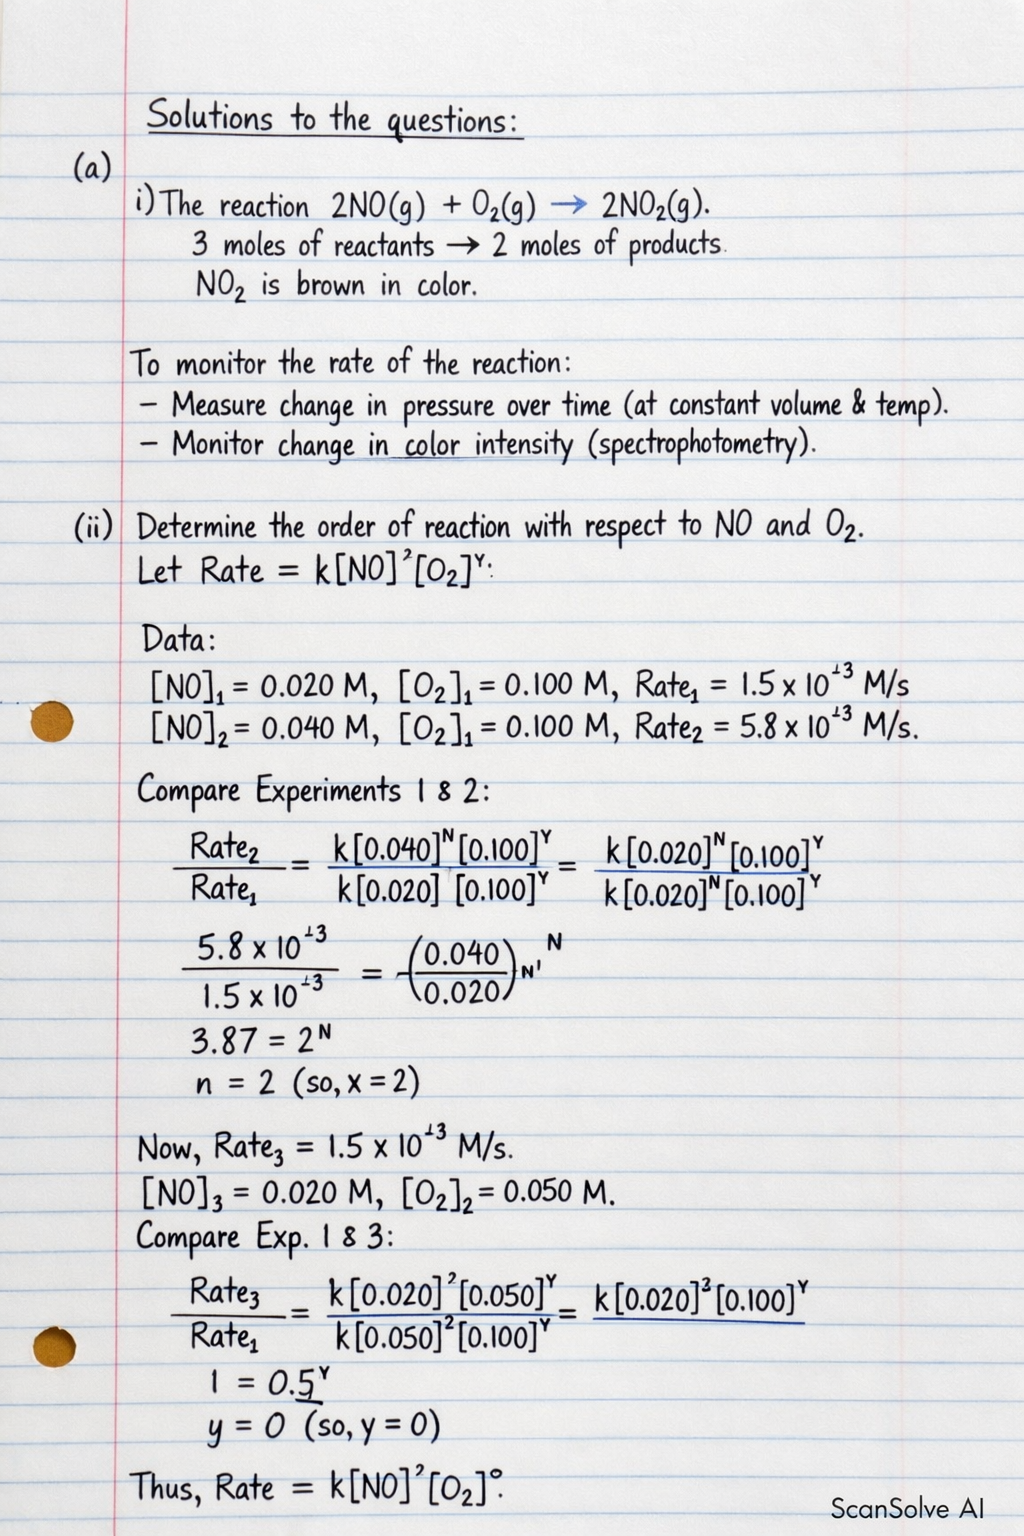 Solutions to the questions:
(a)
i) The reaction 2NO(g) + O₂(g) → 2NO₂(g).
3 moles of reactants → 2 moles of products.
NO₂ is brown in color.
To monitor the rate of the reaction:
– Measure change in pressure over time (at constant volume & temp).
– Monitor change in color intensity (spectrophotometry).
(ii) Determine the order of reaction with respect to NO and O₂.
Let Rate = k[NO]²[O₂]ʸ:
Data:
[NO]₁ = 0.020 M, [O₂]₁ = 0.100 M, Rate₁ = 1.5 x 10⁻³ M/s
[NO]₂ = 0.040 M, [O₂]₁ = 0.100 M, Rate₂ = 5.8 x 10⁻³ M/s.
Compare Experiments 1 & 2:
Rate₂ / Rate₁ = k[0.040]ᴺ[0.100]ʸ / k[0.020] [0.100]ʸ = k[0.020]ᴺ[0.100]ʸ / k[0.020]ᴺ[0.100]ʸ
5.8 x 10⁻³ / 1.5 x 10⁻³ = (0.040 / 0.020) N' ᴺ
3.87 = 2ᴺ
n = 2 (so, x = 2)
Now, Rate₃ = 1.5 x 10⁻³ M/s.
[NO]₃ = 0.020 M, [O₂]₂ = 0.050 M.
Compare Exp. 1 & 3:
Rate₃ / Rate₁ = k[0.020]²[0.050]ʸ / k[0.050]²[0.100]ʸ = k[0.020]³[0.100]ʸ
1 = 0.5ʸ
y = 0 (so, y = 0)
Thus, Rate = k[NO]²[O₂]⁰.
ScanSolve AI